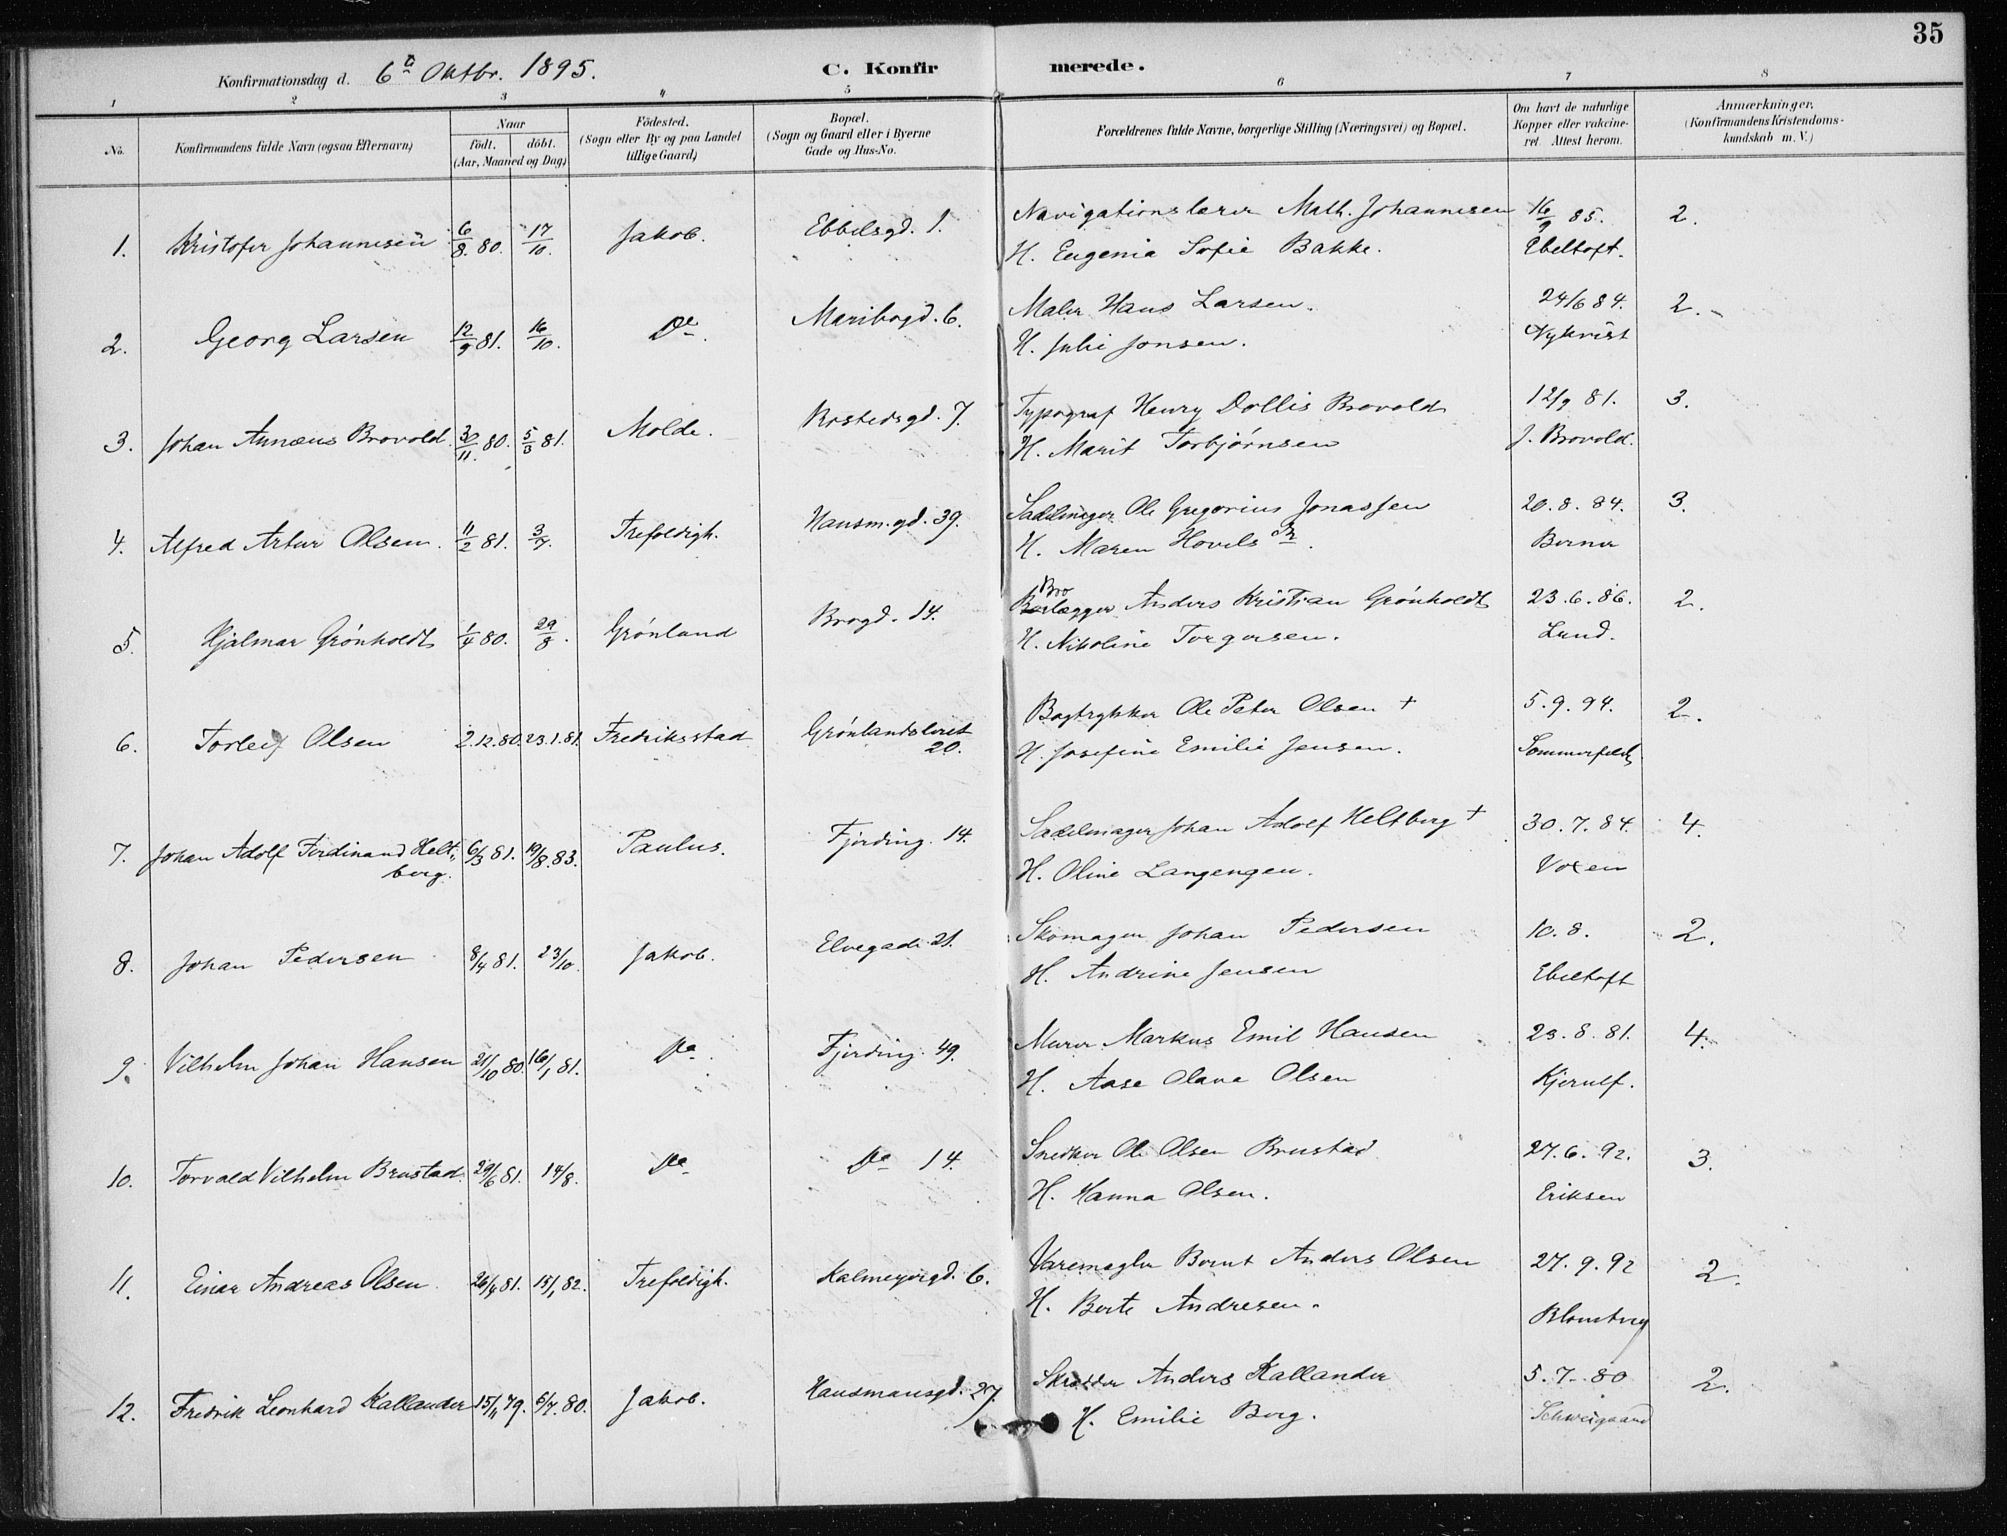 35
Konfirmationsdag d. 6te Oktbr. 1895. C. Konfirmerede.
1 2 3 4 5 6 7 8
No. Konfirmandens fulde Navn (ogsaa Efternavn) Naar født. døbt. (Aar, Maaned og Dag) Fødested. (Sogn eller By og paa Landet tillige Gaard) Bopæl. (Sogn og Gaard eller i Byerne Gade og Hus-No. Forældrenes fulde Navne, borgerlige Stilling (Næringsvei) og Bopæl. Om havt de naturlige Kopper eller vakcineret. Attest herom. Anmærkninger. (Konfirmandens Kristendomskundskab m. V.)
1. Kristofer Johannesen 6/8. 80. 17/10. Jakob. Ebbelsgd. 1. Navigationslærer Math. Johannesen 16/9 85. 2.
H. Eugenia Sofie Bakke. Ebeltoft.
2. Georg Larsen 12/9 81. 16/10. Do. Maribogd. 6. Maler Hans Larsen. 24/6 84. 2.
H. Julie Jonsen. Nykvist
3. Johan Annæus Brovold 30/11. 80. 5/3 81. Molde. Korstedsgd. 7. Typograf Henry Dollis Brovold 12/9 81. 3.
H. Marit Torbjørnsen J. Brovold.
4. Alfred Artur Olsen. 11/2 81. 3/7. Trefoldigh. Hausm.gd. 39. Sadelmager Ole Gregorius Jonassen 20. 8. 84. 3.
H. Maren Hovels Dr. Berner
5. Hjalmar Grønholdt 1/4 80. 29/8. Grønland Brogd. 14. Brolægger Anders Kristian Grønholdt 23. 6. 86. 2.
H. Nikoline Torgersen. Lund.
6. Torleif Olsen 2.12.80. 23.1.81. Fredriksstad Grønlandsleret 20. Bogtrykker Ole Peter Olsen + 5. 9. 94. 2.
H. Josefine Emilie Jensen. Sommerfeldt
7. Johan Adolf Ferdinand Heltberg. 6/3 81. 19/8. 83. Paulus. Fjerding. 14. Sadelmager Johan Adolf Heltberg + 30. 7. 84. 4.
H. Oline Langengen. Voxen
8. Johan Pedersen 8/4 81. 23/10. Jakob. Elvegade 21. Skomager Johan Pedersen 10. 8. 2.
H. Andrine Jensen Ebeltoft
9. Vilhelm Johan Hansen 21/10 80. 16/1 81. Do. Fjerding. 49. Murer Markus Emil Hansen 23. 8. 81. 4.
H. Aase Olava Olsen Kjerulf.
10. Torvald Vilhelm Brustad. 29/6 81. 14/8. Do Do 14. Snedker Ole Olsen Brustad 27. 6. 92. 3.
H. Hanna Olsen. Eriksen
11. Einar Andreas Olsen. 26/4 81. 15/1 82. Trefoldigh. Kalmeyergd. 6. Varemægler Bernt Anders Olsen 27. 9. 92 2.
H. Berte Andresen. Blomberg
12. Fredrik Leonhard Kallander 15/11 79. 6/7. 80. Jakob. Hausmansgd. 27. Skrædder Anders Kallander 5. 7. 80 2.
H. Emilie Berg. Schweigaard